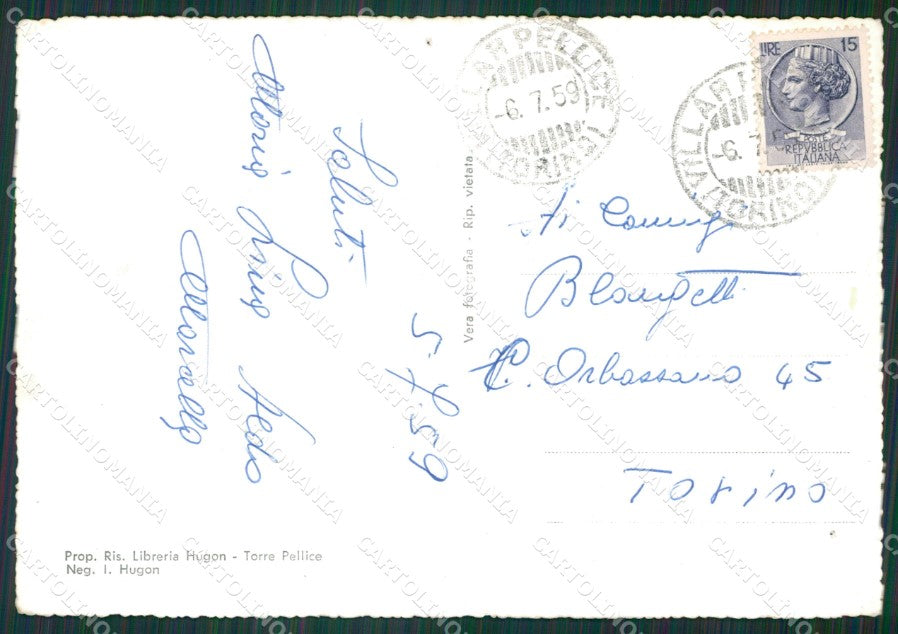 Saluti
Marcello
5.7.59
Vera fotografia - Rip. vietata
VILLAR PELLICE
(TORINO)
-6.7.59
VILLAR
(TORINO)
-6.7.5
LIRE 15
POSTE
REPVBBLICA
ITALIANA
Ai Coniugi
Blangetti
C. Orbassano 45
Torino
Prop. Ris. Libreria Hugon - Torre Pellice
Neg. I. Hugon
CARTOLINOMANIA